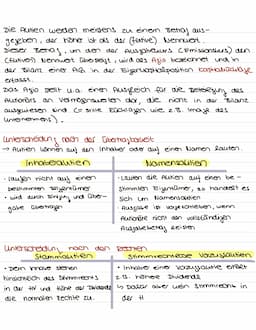 Die Aktien werden meistens zu einem Betrag aus-
gegeben, der höher ist als der (fiktive) Nennwert.
Dieser Betrag, um den der Ausgabekurs (Emissionskurs) den
(fiktiven) Nennwert übersteigt, wird als Agio bezeichnet und in
der Bilanz einer AG in der Eigenkapitalposition Kapitalrücklage
erfasst.
Das Agio stellt u.a. einen Ausgleich für die Beteiligung des
Aktionärs an Vermögenswerten dar, die nicht in der Bilanz
ausgewiesen sind (= stille Rücklagen wie z.B. Image des
Unternehmens).
Unterscheidung nach der Übertragbarkeit
→ Aktien können auf den Inhaber oder auf einen Namen lauten.
Inhaberaktien
Namensaktien
• lauten nicht auf einen
bestimmten Eigentümer
• wird durch Einigung und Über-
gabe übertragen
• Lauten die Aktien auf einen be-
stimmten Eigentümer, so handelt es
sich um Namensaktien
• Ausgabe ist vorgeschrieben, wenn
Aktionäre nicht den vollständigen
Ausgabebetrag leisten
Unterscheidung nach den Rechten
Stammaktien
Stimmrechtslose Vorzugsaktien
• Dem Inhaber stehen
hinsichtlich des Stimmrechts
in der HV und Höhe der Dividende
die normalen Rechte zu.
• Inhaber einer Vorzugsaktie erhält
z.B. höhere Dividende
↳ Dafür aber kein Stimmrecht in
der H